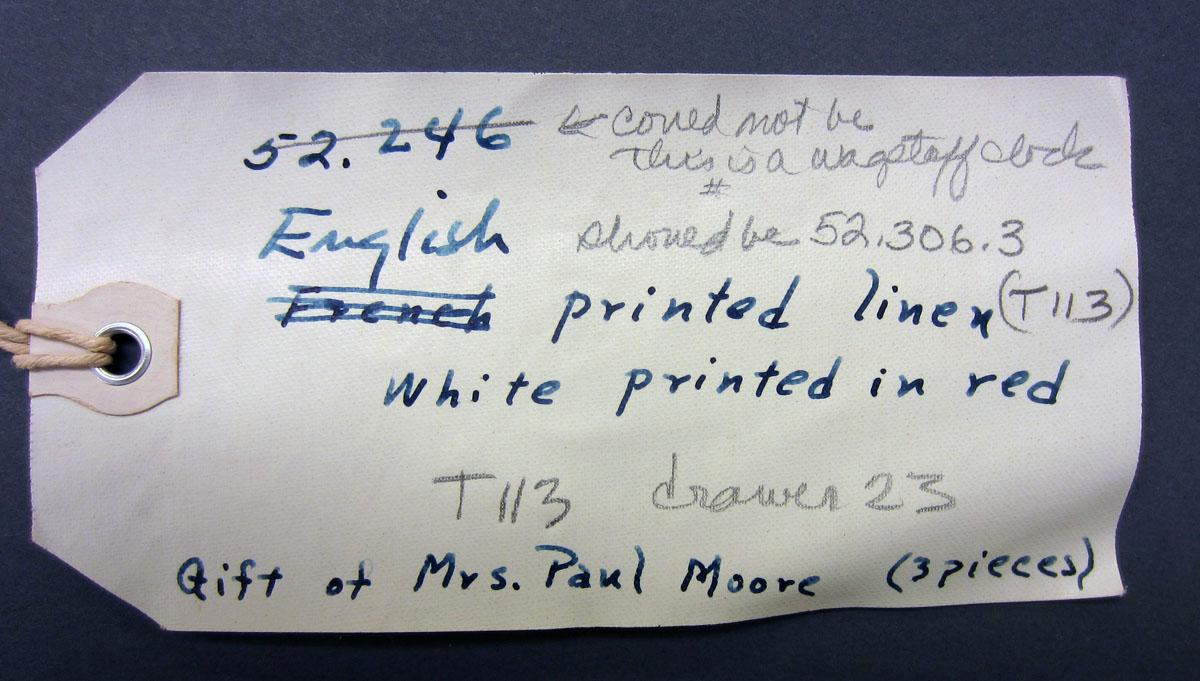 52.246 ← could not be
This is a Wagstaff clock
#
English should be 52.306.3
French printed linen (T113)
White printed in red
T113 drawer 23
Gift of Mrs. Paul Moore (3 pieces)